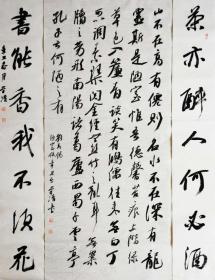 茶亦醉人何必酒
山不在高有仙則名水不在深有龍
則靈斯是陋室惟吾德馨苔痕上階綠
草色入簾青談笑有鴻儒往來無白丁可
以調素琴閱金經無絲竹之亂耳無案
牘之勞形南陽諸葛廬西蜀子雲亭
孔子云何陋之有
書能香我不須花